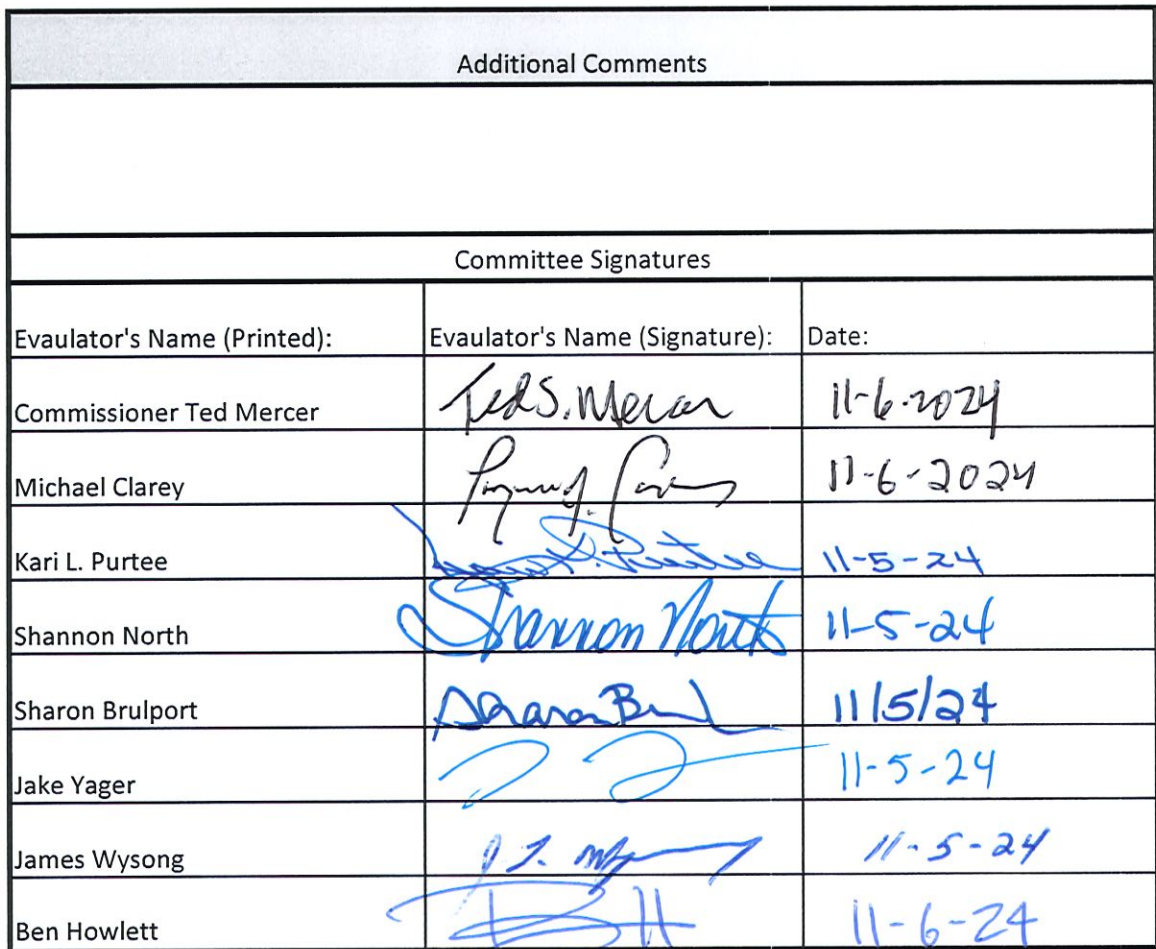 Additional Comments
Committee Signatures
Evaulator's Name (Printed): Evaulator's Name (Signature): Date:
Commissioner Ted Mercer Ted S. Mercer 11-6-2024
Michael Clarey 11-6-2024
Kari L. Purtee Purtee 11-5-24
Shannon North Shannon North 11-5-24
Sharon Brulport Sharon 11/5/24
Jake Yager 11-5-24
James Wysong 11-5-24
Ben Howlett 11-6-24